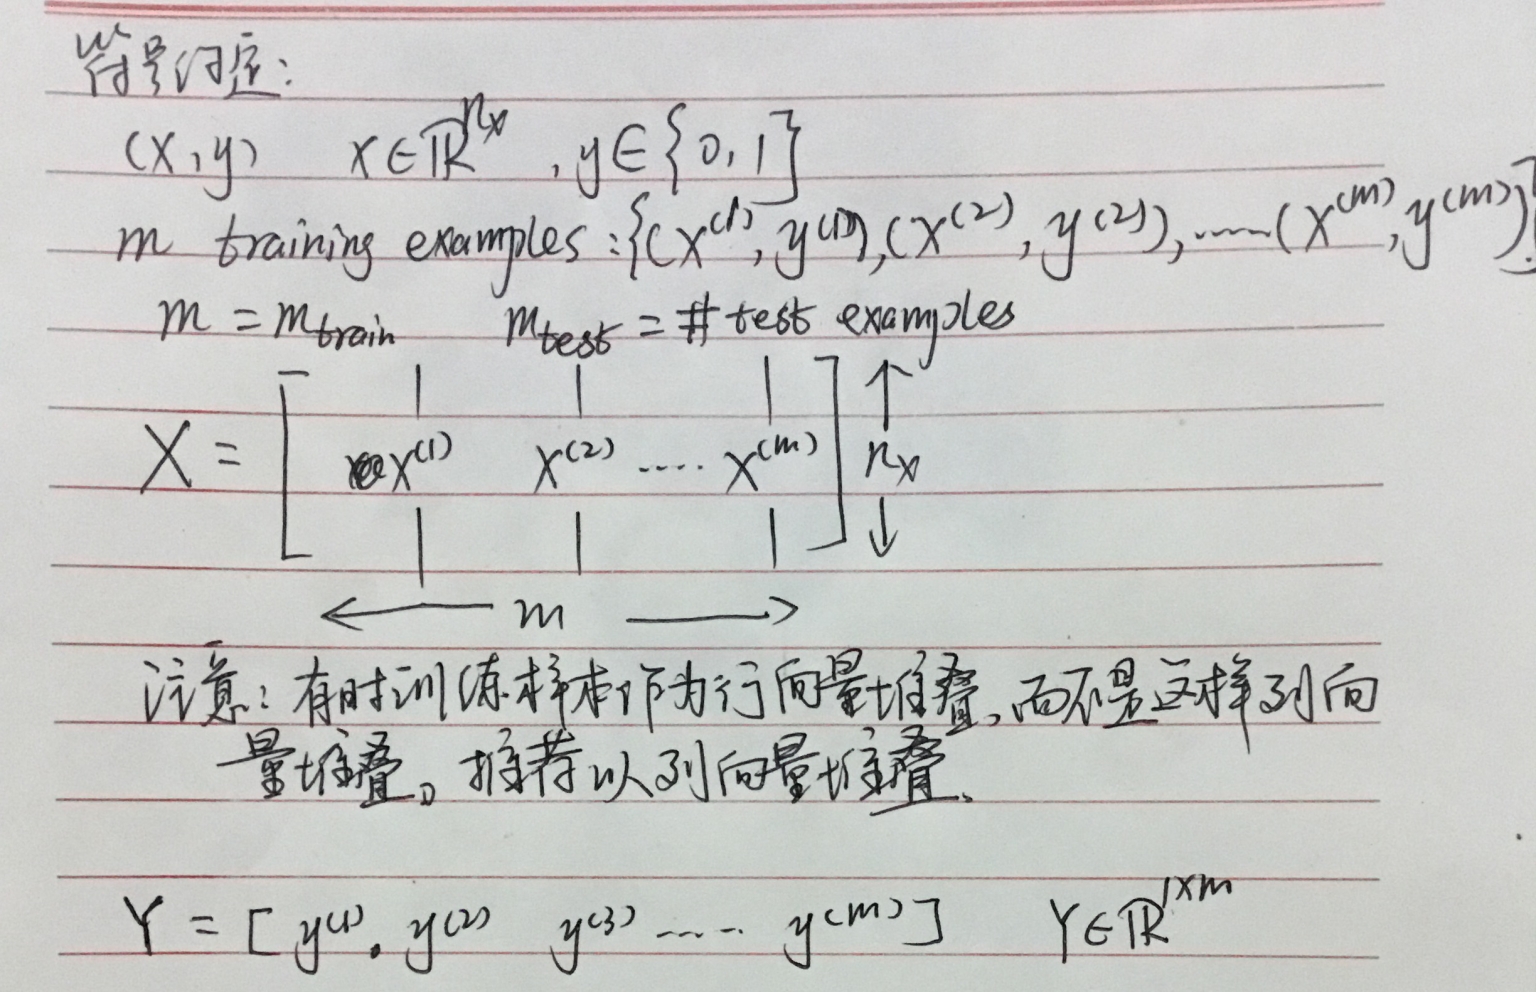 符号约定:
(x,y) x∈ℝ^{n_x} ,y∈{0,1}
m training examples:{(x^{(1)},y^{(1)}),(x^{(2)},y^{(2)}),……(x^{(m)},y^{(m)})}
m = m_{train} m_{test} = # test examples
X = [ x^{(1)} x^{(2)} …… x^{(m)} ] n_x
m
注意:有时训练样本作为行向量堆叠,而不是这样列向
量堆叠。推荐以列向量堆叠。
Y = [ y^{(1)}. y^{(2)} y^{(3)} …… y^{(m)} ] Y∈ℝ^{1×m}